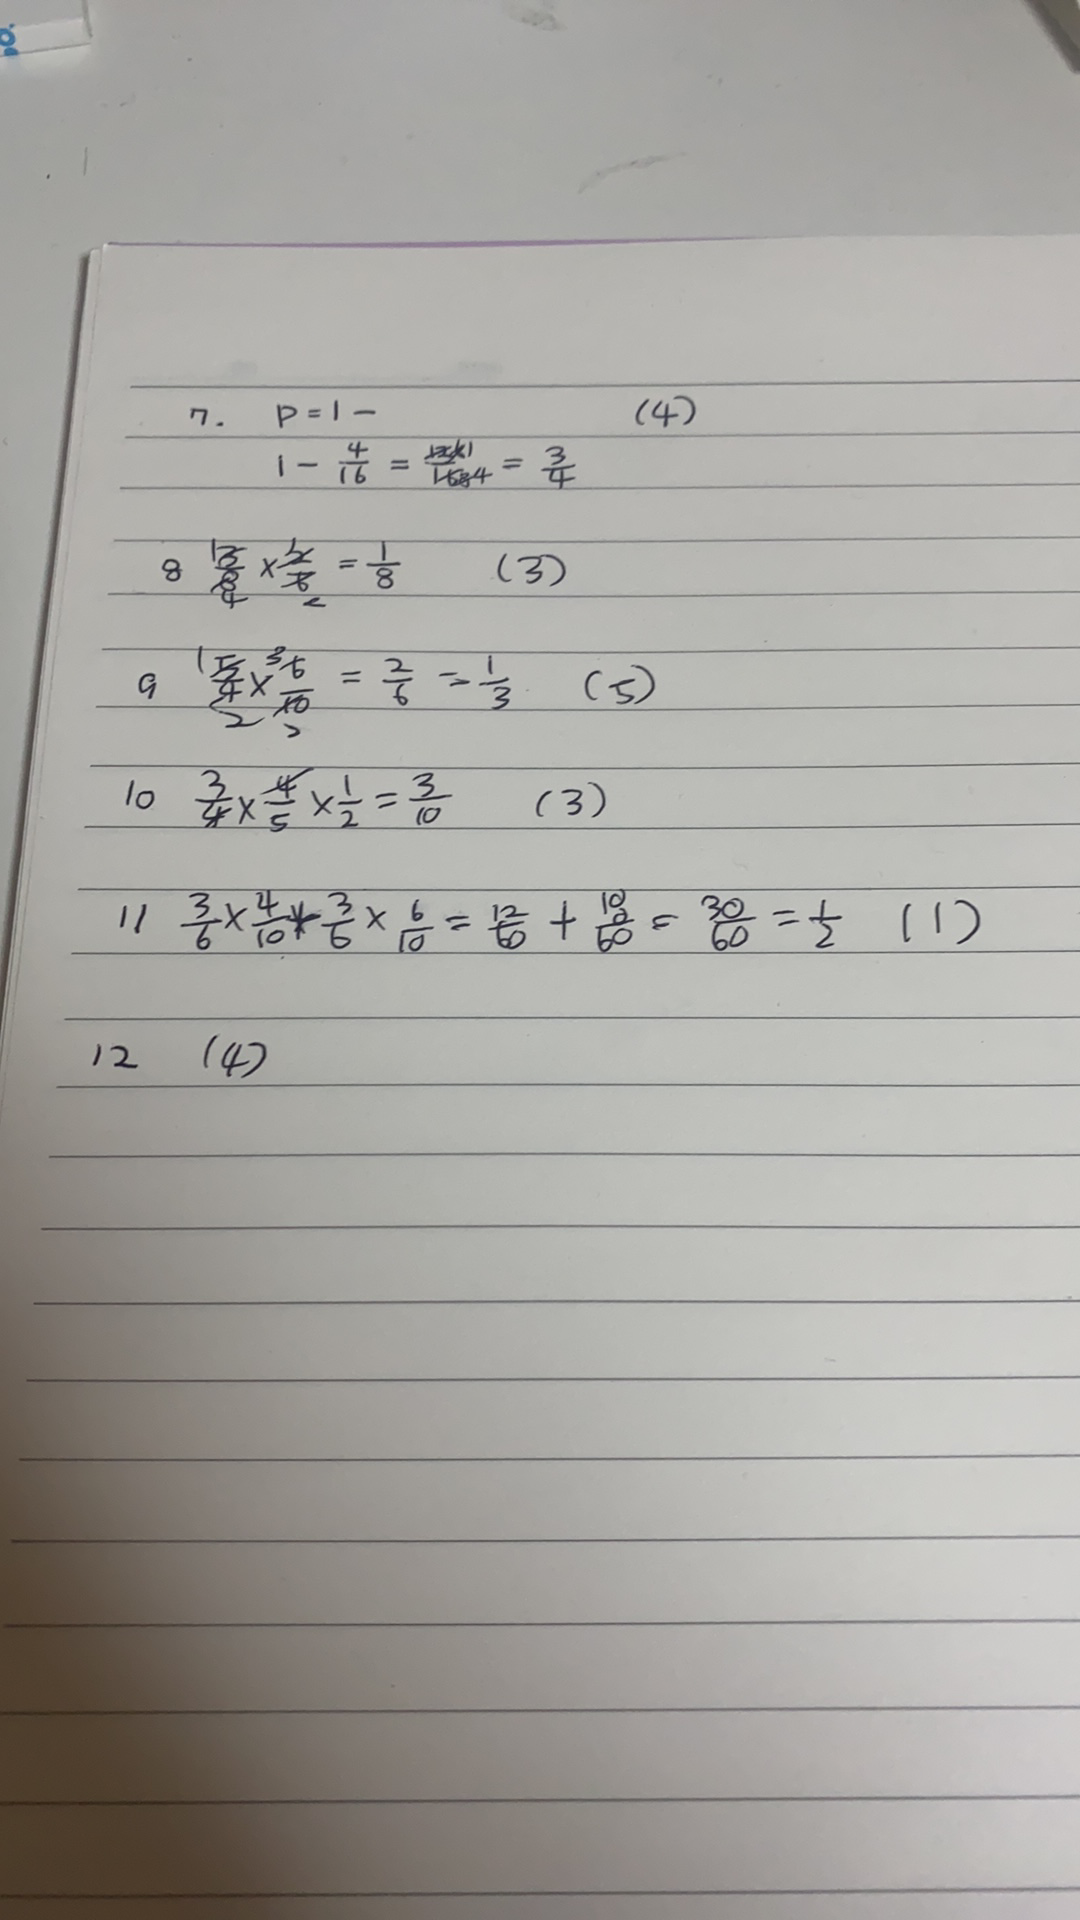 7. P=1- (4)
1 - 4/16 = = 3/4
8 × = 1/8 (3)
9 × 6/10 = 2/6 = 1/3 (5)
10 3/4 × 4/5 × 1/2 = 3/10 (3)
11 3/6 × 4/10 + 3/6 × 6/10 = 12/60 + /60 = 30/60 = 1/2 (1)
12 (4)